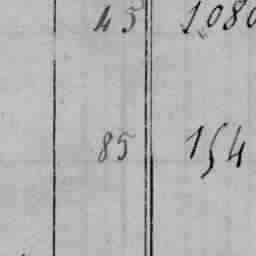 45 1080
85 154